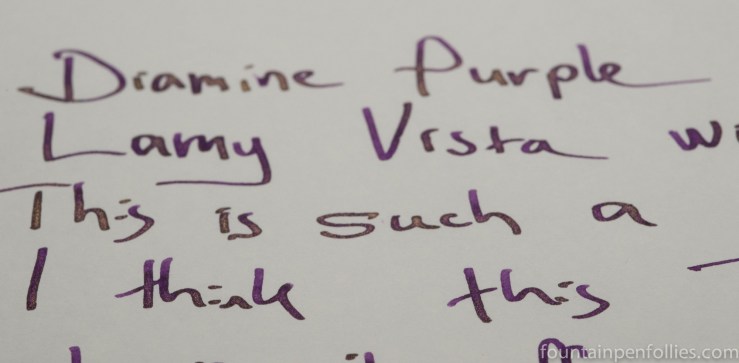 Diamine Purple
Lamy Vista
This is such a
I think this
fountainpenfollies.com